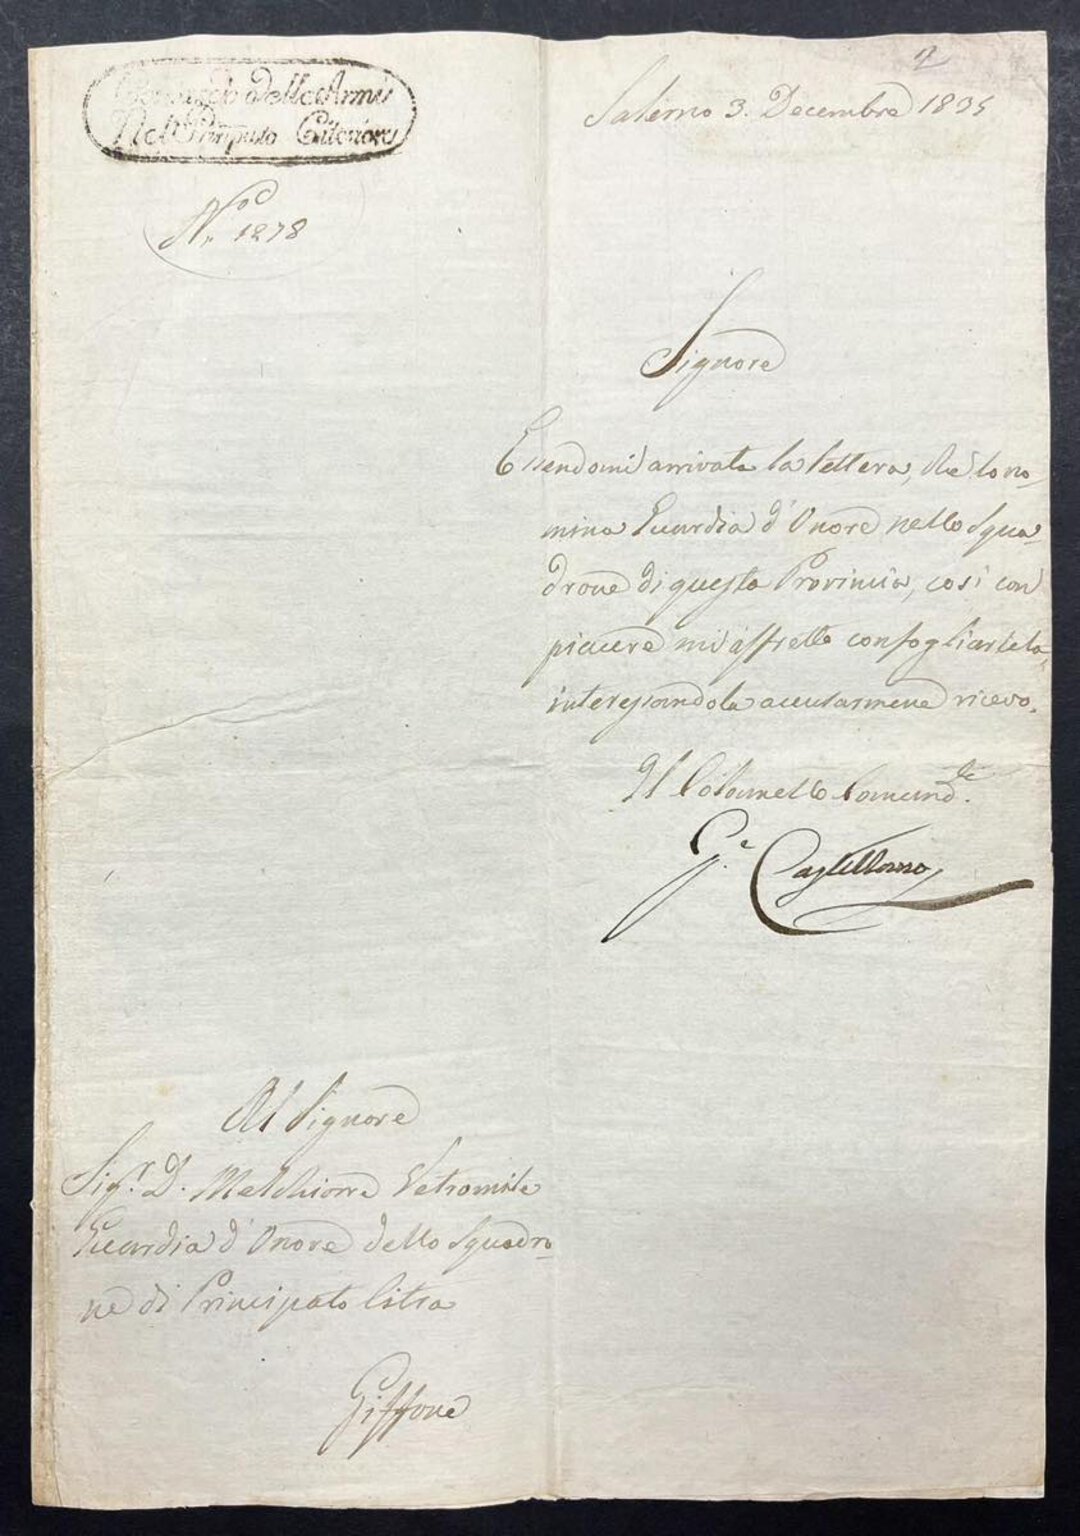 Comando delle Armi
Nel Principato Citeriore
N.° 1278
Salerno 3. Decembre 1835
Signore
Essendomi arrivata la lettera, che lo no-
mina Guardia d'Onore nello Squa-
drone di questa Provincia, così con
piacere mi affretto confogliarcela,
interessandola accusarmene ricevo.
Il Colonnello Comand.te
G.e Castellano
Al Signore
Sig.r D. Melchiorre Vetromile
Guardia d'Onore dello Squadro-
ne di Principato Citra
Giffone